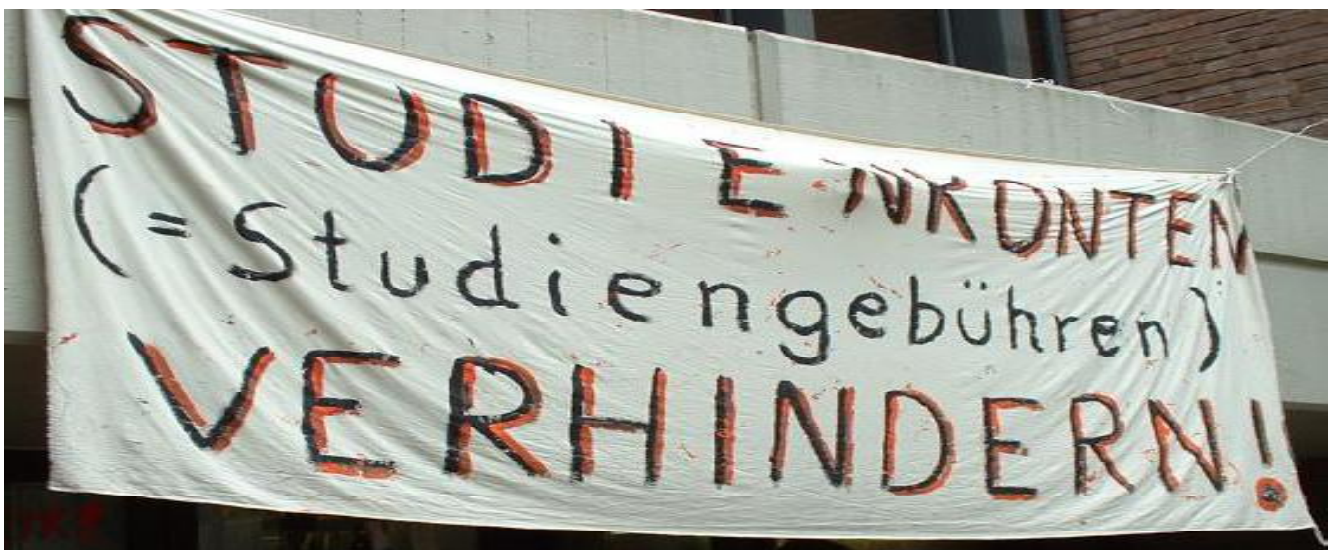 STUDIENKONTEN
(= Studiengebühren)
VERHINDERN!